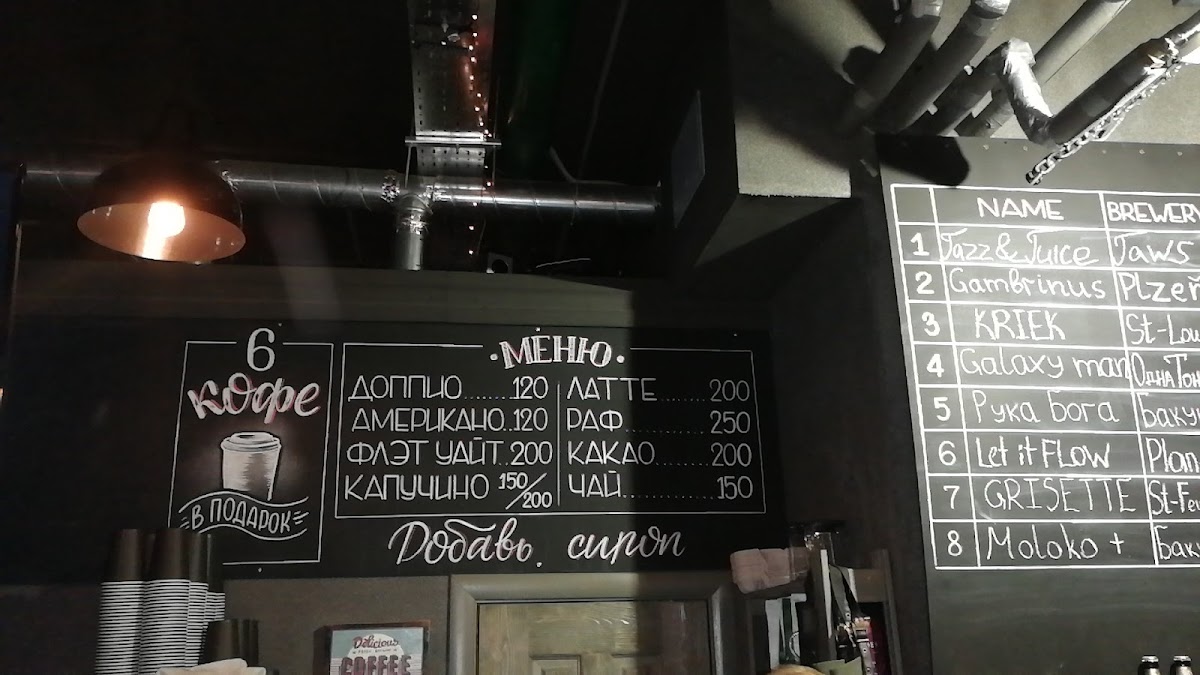 6
кофе
В ПОДАРОК
МЕНЮ
ДОППИО.......120
АМЕРИКАНО..120
ФЛЭТ УАЙТ..200
КАПУЧИНО 150/200
ЛАТТЕ........200
РАФ............250
КАКАО.......200
ЧАЙ............150
Добавь сироп
Delicious
COFFEE
NAME BREWERY
1 Jazz & Juice Jaws
2 Gambrinus Plzeň
3 KRIEK St-Lou
4 Galaxy man Одна Тон
5 Рука Бога Баку
6 Let it FLOW Plan
7 GRISETTE St-Feu
8 Moloko + Баку